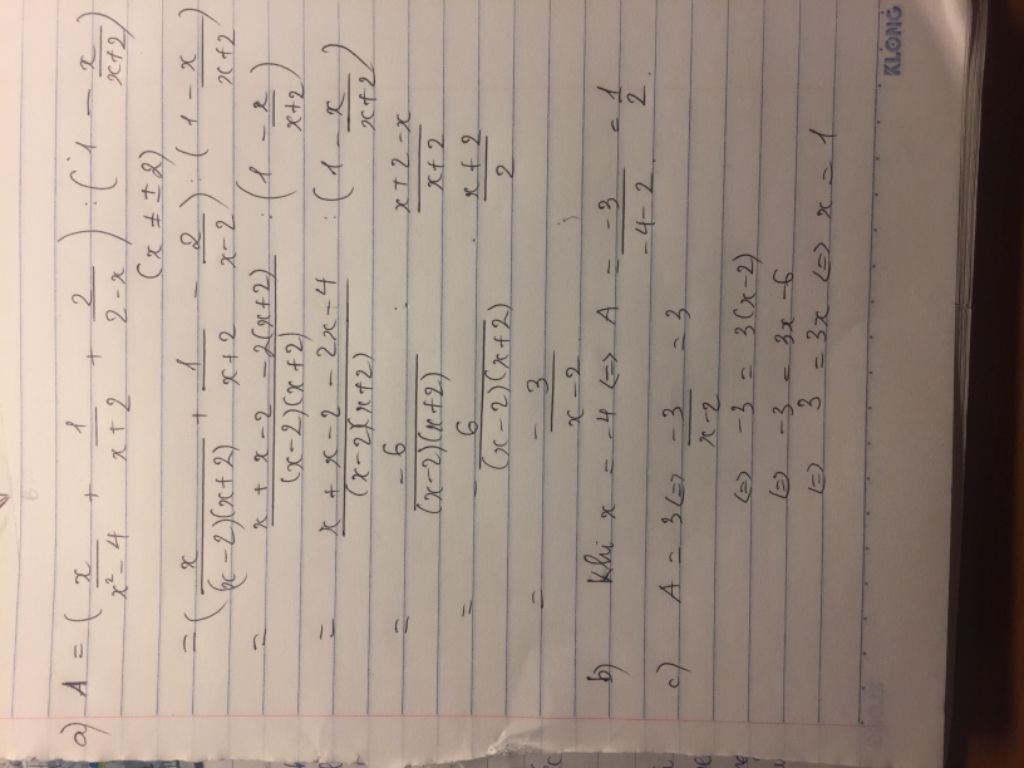 a) A = ( x/(x² - 4) + 1/(x + 2) + 2/(2 - x) ) : ( 1 - x/(x+2) )
(x ≠ ± 2)
= ( x/((x-2)(x+2)) + 1/(x+2) - 2/(x-2) ) : ( 1 - x/(x+2) )
= (x + x - 2 - 2(x+2))/((x-2)(x+2)) : ( 1 - x/(x+2) )
= (x + x - 2 - 2x - 4)/((x-2)(x+2)) : ( 1 - x/(x+2) )
= -6/((x-2)(x+2)) : (x+2-x)/(x+2)
= -6/((x-2)(x+2)) . (x+2)/2
= -3/(x-2)
b) Khi x = -4 (=> A = -3/(-4-2) = 1/2.
c) A = 3 (=> -3/(x-2) = 3
(=) -3 = 3(x-2)
(=) -3 = 3x - 6
(=) 3 = 3x (=) x = 1
KLONG